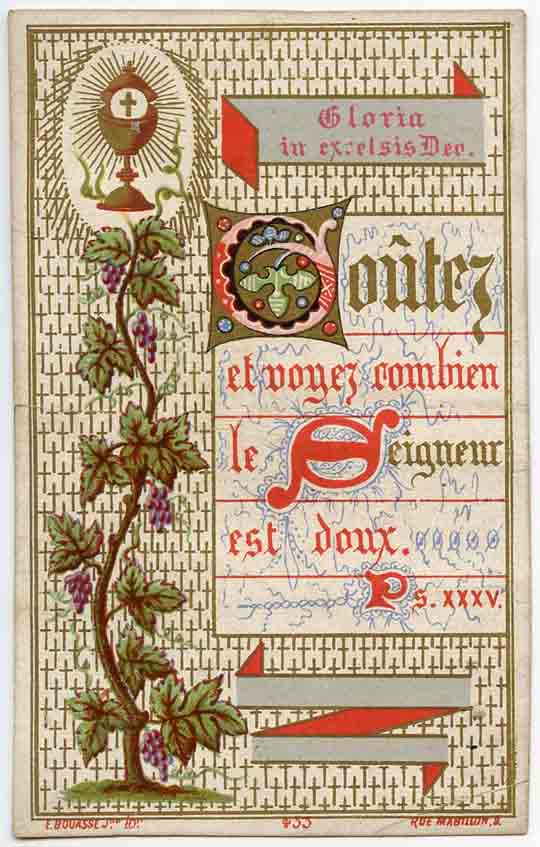 Gloria
in excelsis Deo.
Goûtez
et voyez combien
le Seigneur
est doux.
Ps. XXXV.
E. BOUASSE Jne Edr.
433
RUE MABILLON, 8.